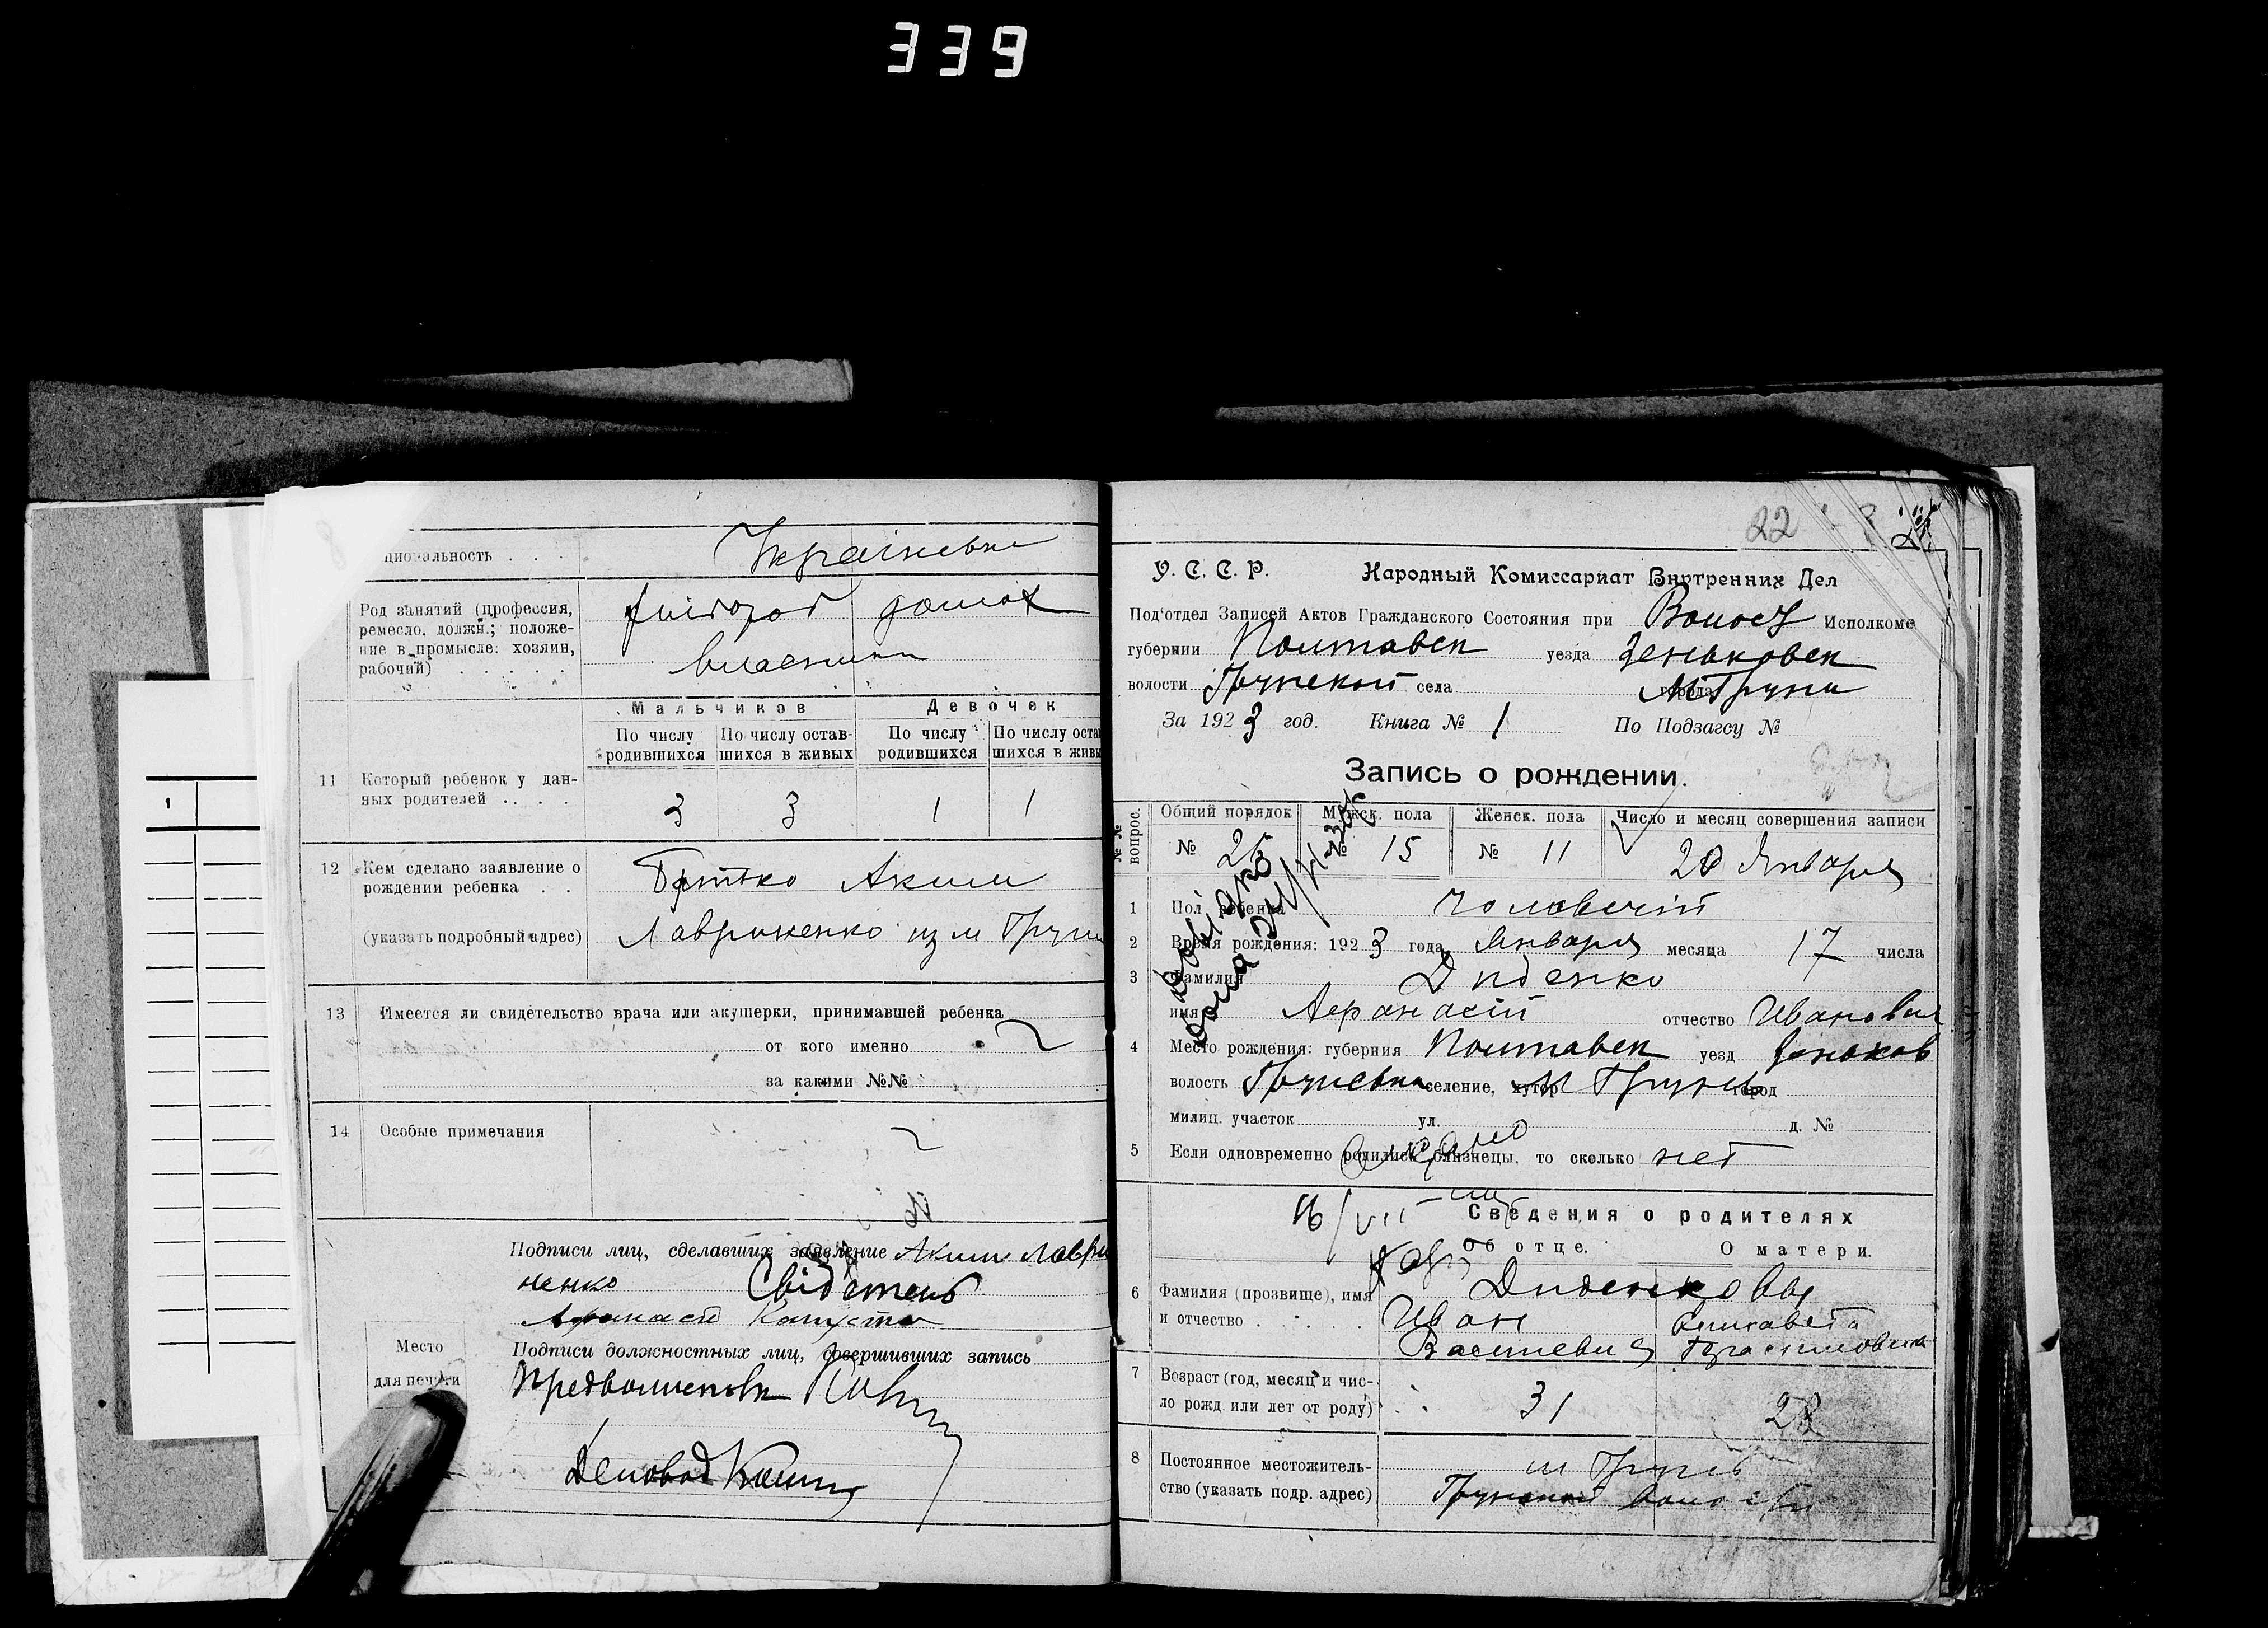 339
циональность . . .
Українське
Род занятий (профессия,
ремесло, должн.; положе-
ние в промысле: хозяин,
рабочий) . . . . .
хлібороб домох
власники
Мальчиков
Девочек
По числу родившихся
По числу остав-шихся в живых
По числу родившихся
По числу оста шихся в живы
11 Который ребенок у дан-
ных родителей . . . .
3 3 1 1
12 Кем сделано заявление о
рождении ребенка . .
(указать подробный адрес)
Батько Аким
Лавриненко из м Груни
13 Имеется ли свидетельство врача или акушерки, принимавшей ребенка
от кого именно
за какими №№
14 Особые примечания
Подписи лиц, сделавших заявление Аким Лаври
ненко Свідетель
Афанасій Капуста
Место
для печати
Подписи должностных лиц, совершивших запись
Предволисполк
Деловод
22
У. С. С. Р. Народный Комиссариат Внутренних Дел
Под'отдел Записей Актов Гражданского Состояния при Волос Исполкоме
губернии Полтавск уезда Зеньковск
волости Грунской села города М Груни
За 1923 год. Книга № 1 По Подзагсу №
Запись о рождении.
№№ вопрос.
Общий порядок
Мужск. пола
Женск. пола
Число и месяц совершения записи
№ 25 № 15 № 11 20 Января
1 Пол ребенка Чоловечій
2 Время рождения: 1923 года Января месяца 17 числа
3 Фамилия Диденко
имя Афанасій отчество Иванович
4 Место рождения: губерния Полтавск уезд Зеньков
волость Грунська селение, хутор М Грунь город
милиц. участок ул. д. №
5 Если одновременно родились близнецы, то сколько нет
16/VII
Сведения о родителях
Об отце. О матери.
6 Фамилия (прозвище), имя
и отчество . . . .
Диденковы
Иван Елизавета
Васильевич Герасимовна
7 Возраст (год, месяц и чис-
ло рожд. или лет от роду)
31 28
8 Постоянное местожитель-
ство (указать подр. адрес)
м Грунь
Грунской волости